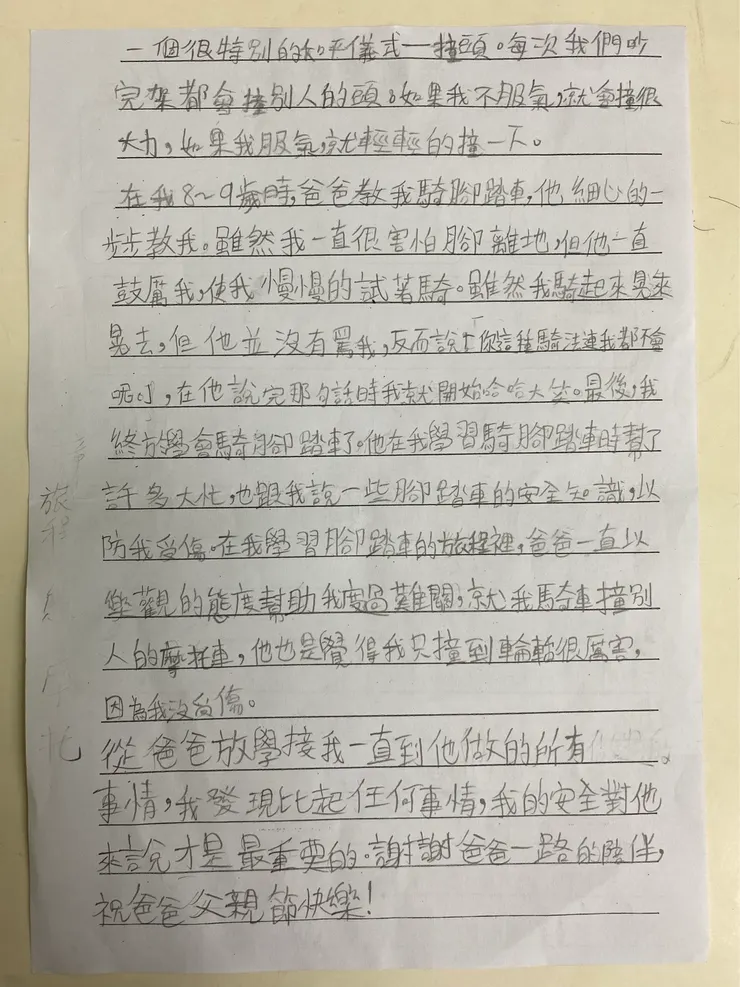 一個很特別的和平儀式—撞頭。每次我們吵
完架都會撞別人的頭。如果我不服氣,就會撞很
大力,如果我服氣,就輕輕的撞一下。
在我8~9歲時,爸爸教我騎腳踏車,他細心的一
步步教我。雖然我一直很害怕腳離地,但他一直
鼓厲我,使我慢慢的試著騎。雖然我騎起來晃來
晃去,但他並沒有罵我,反而說:「你這種騎法連我都不會
呢!」,在他說完那句話時我就開始哈哈大笑。最後,我
終於學會騎腳踏車了。他在我學習騎腳踏車時幫了
許多大忙,也跟我說一些腳踏車的安全知識,以
防我受傷。在我學習腳踏車的旅程裡,爸爸一直以
樂觀的態度幫助我度過難關,就我騎車撞別
人的摩托車,他也是覺得我只撞到輪胎很厲害,
因為我沒受傷。
從爸爸放學接我一直到他做的所有
事情,我發現比起任何事情,我的安全對他
來說才是最重要的。謝謝爸爸一路的陪伴,
祝爸爸父親節快樂!
旅程